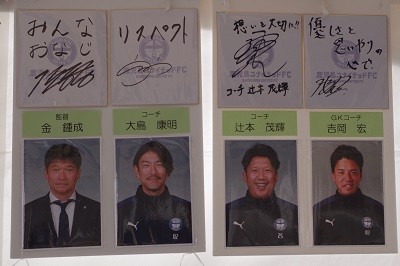 みんな
おなじ
リスペクト
想いを大切に!!
コーチ 辻本茂輝
優しさと
思いやりの
心で
鹿児島ユナイテッドFC
監督
金 鍾成
コーチ
大島 康明
コーチ
辻本 茂輝
GKコーチ
吉岡 宏